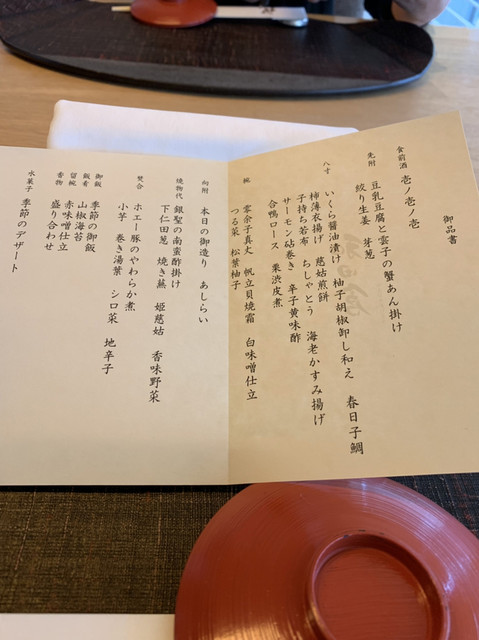 御品書
食前酒 壱ノ壱ノ壱
先附 豆乳豆腐と雲子の蟹あん掛け
絞り生姜 芽葱
八寸 いくら醤油漬け 柚子胡椒卸し和え 春日子鯛
柿薄衣揚げ 慈姑煎餅 海老かすみ揚げ
子持ち若布 ちしゃとう 辛子黄味酢
サーモン砧巻き
合鴨ロース 栗渋皮煮
椀 零余子真丈 帆立貝焼霜 白味噌仕立
つる菜 松葉柚子
向附 本日の御造り あしらい
焼物代 銀聖の南蛮酢掛け
下仁田葱 焼き蕪 姫慈姑 香味野菜
焚合 ホエー豚のやわらか煮
小芋 巻き湯葉 シロ菜 地辛子
御飯 季節の御飯
飯肴 山椒海苔
留椀 赤味噌仕立
香物 盛り合わせ
水菓子 季節のデザート